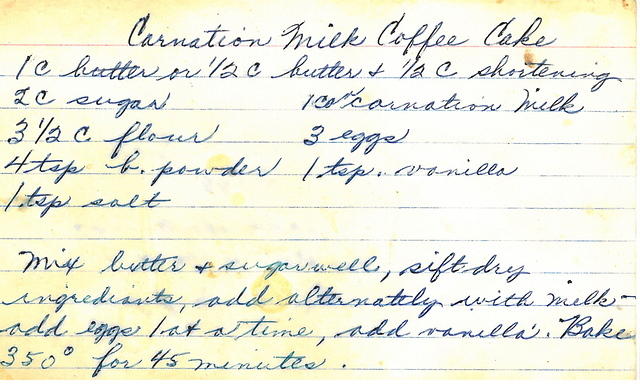 Carnation Milk Coffee Cake
1 C butter or 1/2 C butter & 1/2 C shortening
2C sugar 1 can carnation Milk
3 1/2 C flour 3 eggs
4 tsp b. powder 1 tsp. vanilla
1 tsp salt
Mix butter & sugar well, sift dry
ingrediants, add alternately with milk-
add eggs 1 at a time, add vanilla. Bake
350° for 45 minutes.